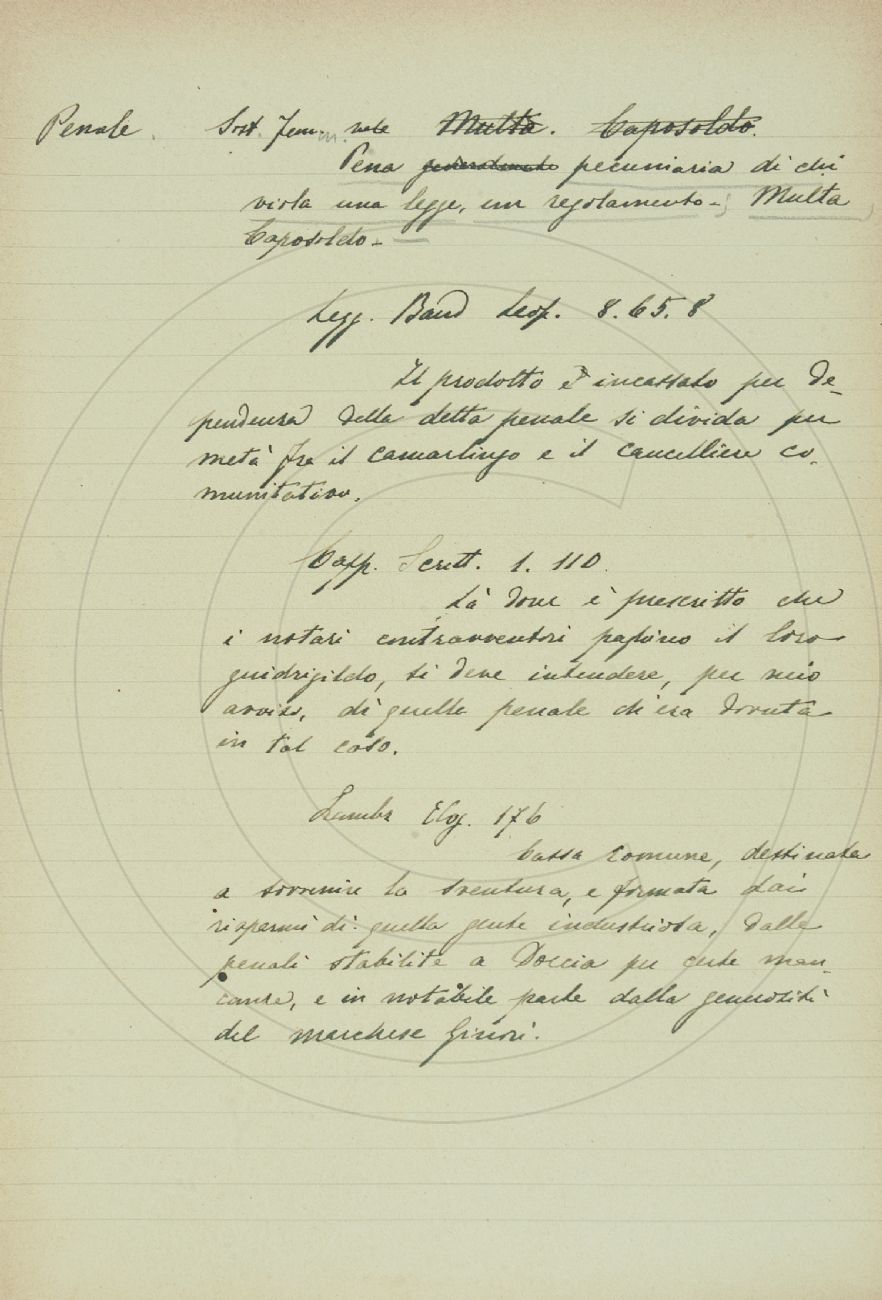 Penale. Sost. Fem. Multa. Caposoldo.
Pena pecuniaria di chi
viola una legge, un regolamento-; Multa
Caposoldo-
Legg. Band Leop. 8. 65. 8
Il prodotto è incassato per de-
pendenza della detta penale si divida per
metà fra il camarlingo e il cancelliere co-
munitativo.
Capp. Scritt. 1. 110.
Là dove è prescritto che
i notari contravventori paghino il loro
guidrigildo, si deve intendere, per mio
avviso, di quella penale ch'era dovuta
in tal caso.
Lambr. Elog. 176
Cassa comune, destinata
a sovvenire la sventura, e formata dai
risparmi di quella gente industriosa, dalle
penali stabilite a Doccia per certe man-
canze, e in notabile parte dalla generosità
del marchese Ginori.